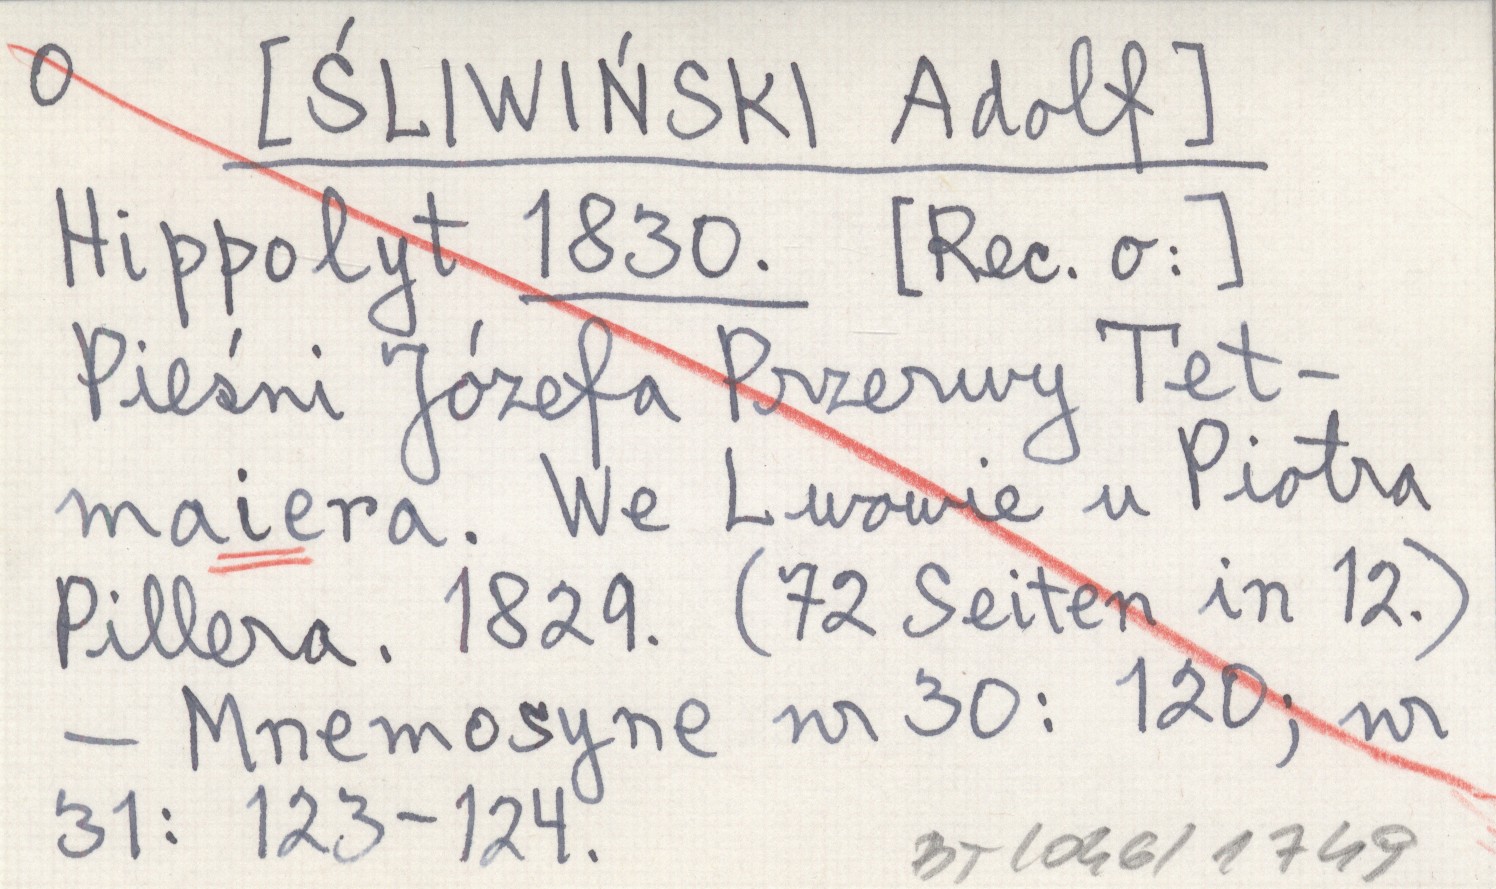 o [ŚLIWIŃSKI Adolf]
Hippolyt 1830. [Rec. o:]
Pieśni Józefa Przerwy Tet-
maiera. We Lwowie u Piotra
Pillera. 1829. (72 Seiten in 12.)
— Mnemosyne nr 30: 120; nr
31: 123-124.
1749